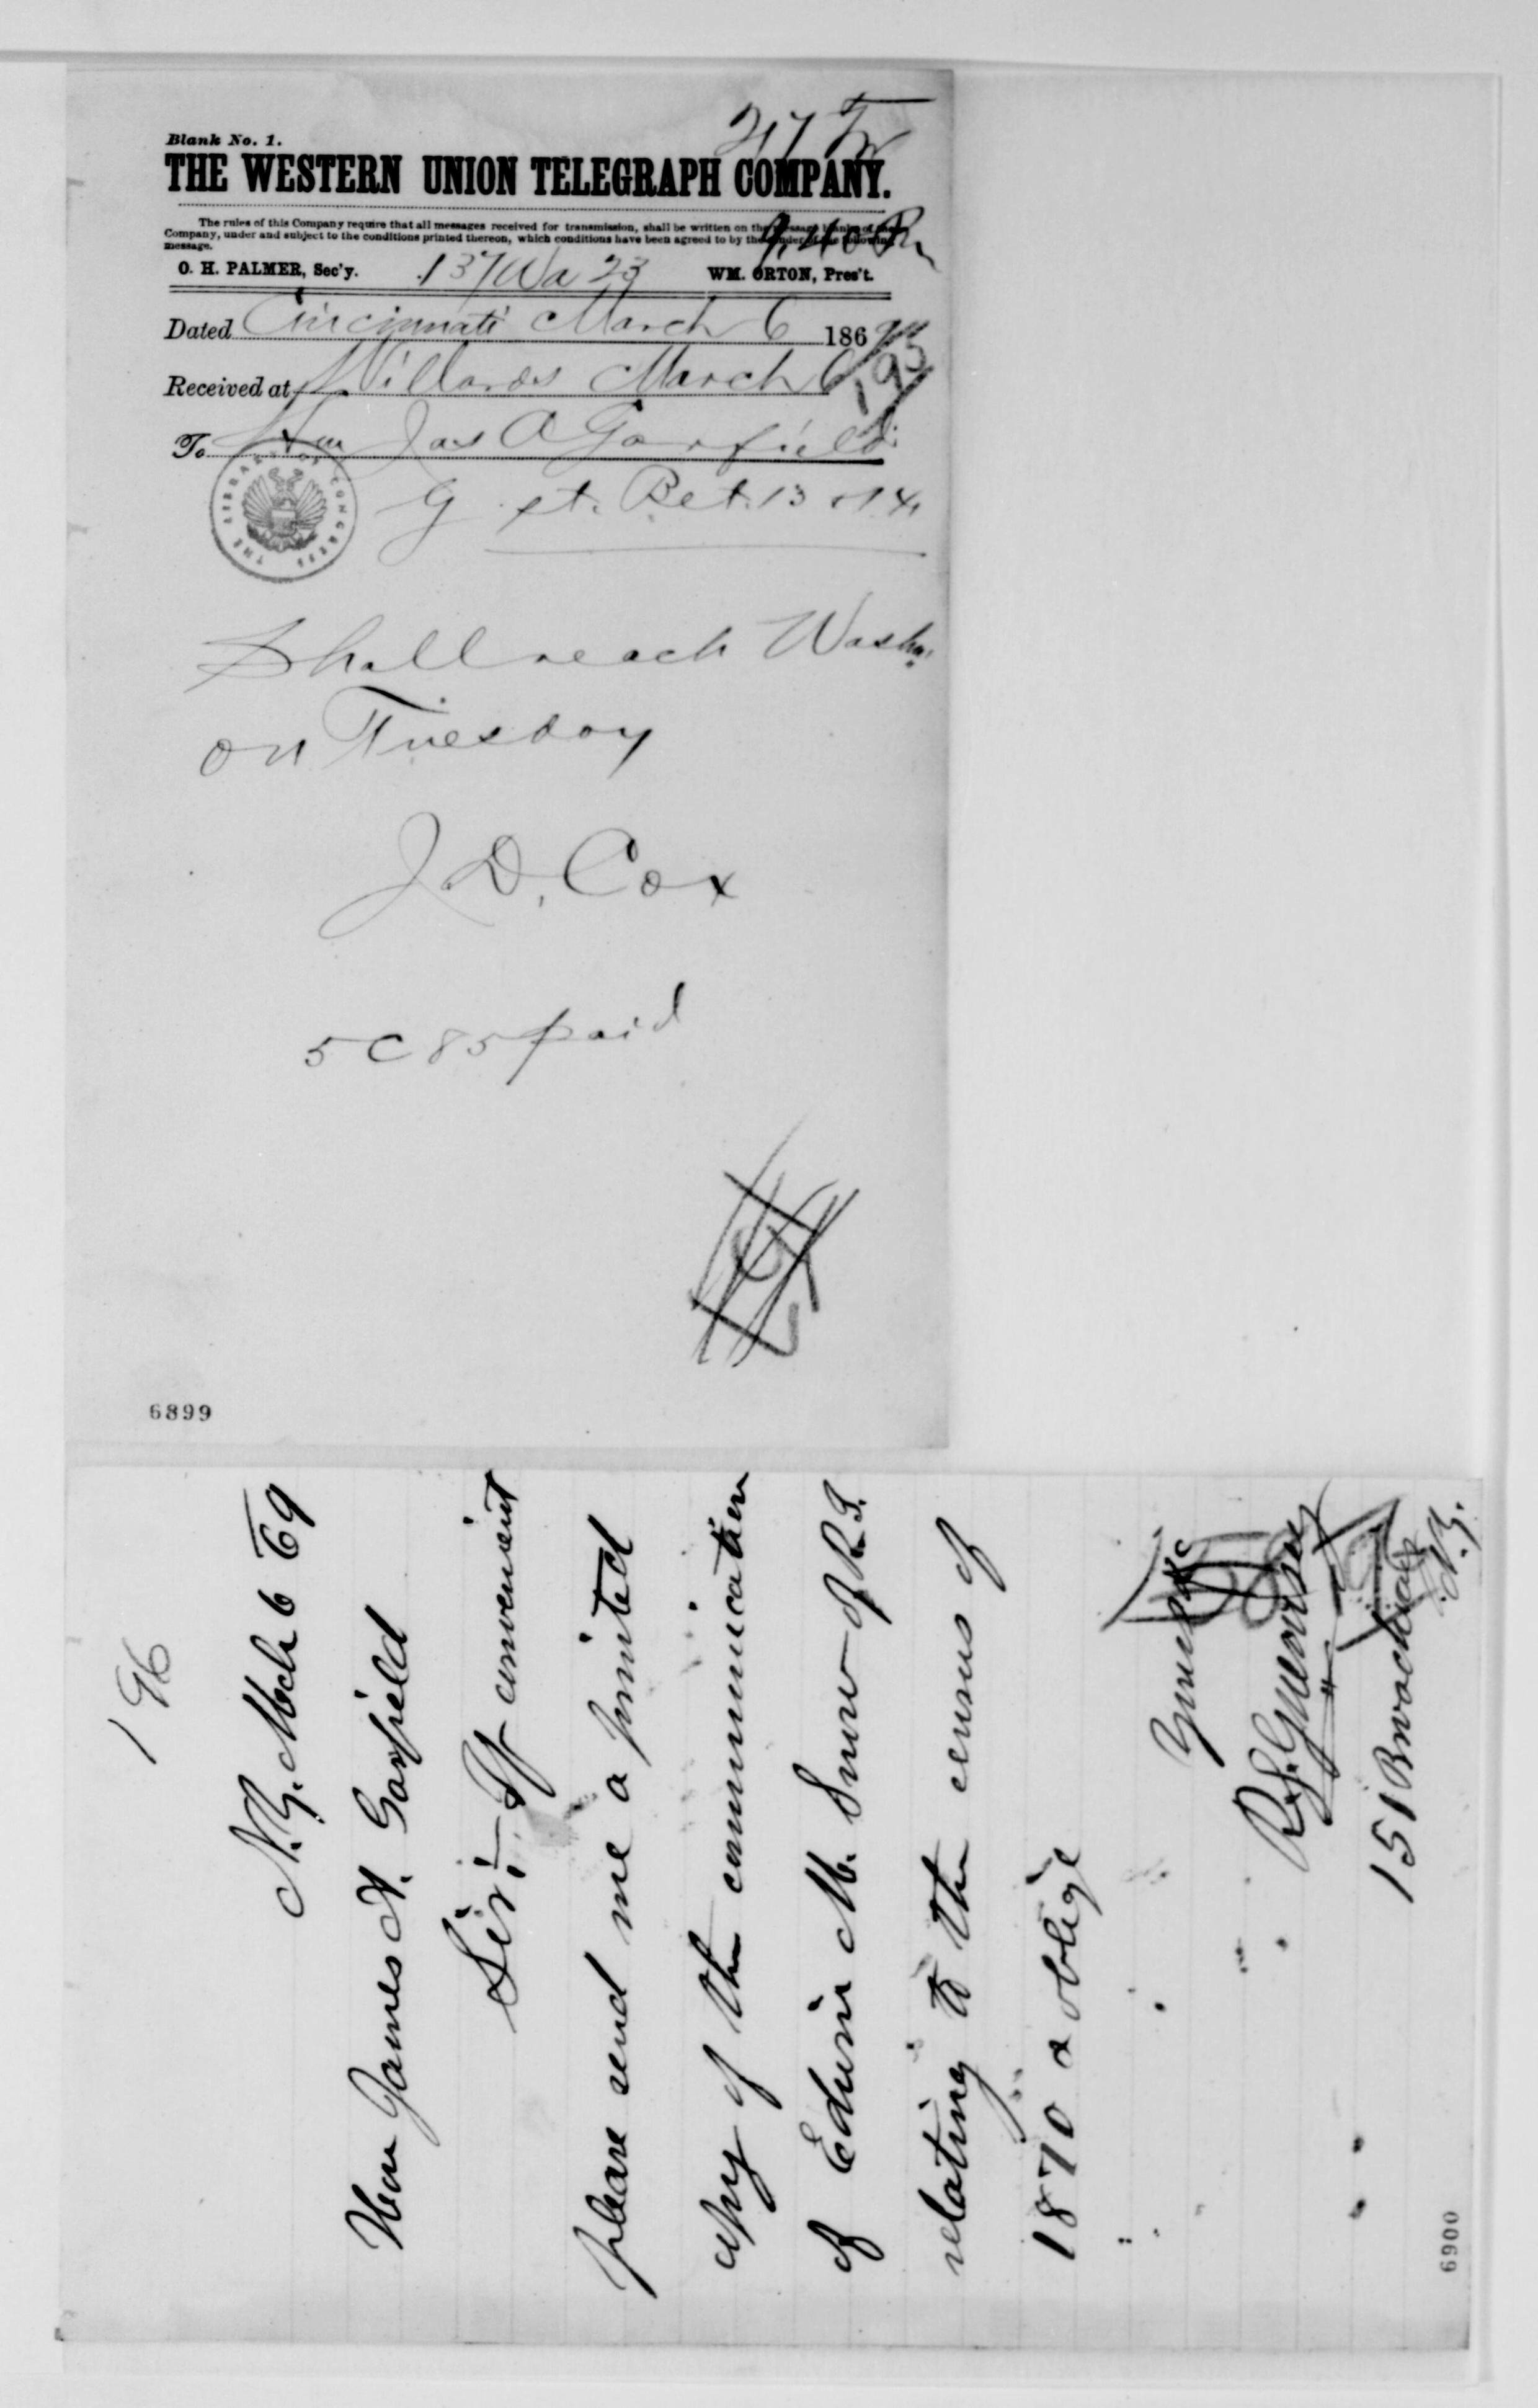 Blank No. 1.
THE WESTERN UNION TELEGRAPH COMPANY.
The rules of this Company require that all messages received for transmission, shall be written on the message blanks of the
Company, under and subject to the conditions printed thereon, which conditions have been agreed to by the sender of the following
message.
O. H. PALMER, Sec'y. 137 Wa 23 WM. ORTON, Pres't.
Dated Cincinnati March 6 1869
195
Received at Willards March 6
To Hon Jas A Garfield
THE LIBRARY OF CONGRESS
G st. Bet. 13 & 14
Shall reach Washn.
on Tuesday
J. D. Cox
5 C 85 paid
6899
196
N.Y. Mch 6 69
Hon James A. Garfield
Sir:- If convenient
please send me a printed
copy of the communication
of Edwin M. Snow of R.I.
relating to the census of
1870 & oblige
Yours &c
R.S. Guernsey
151 Broadway
N.Y.
6900